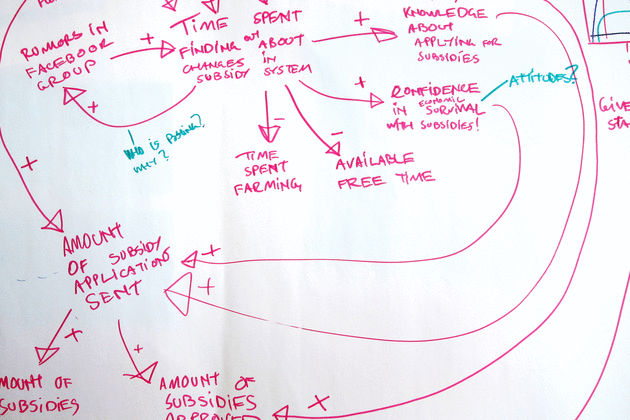 TIME SPENT
FINDING out ABOUT
CHANGES IN
SUBSIDY SYSTEM
RUMORS IN
FACEBOOK
GROUP
+
+
+
KNOWLEDGE
ABOUT
APPLYING FOR
SUBSIDIES
+
CONFIDENCE
IN ECONOMIC SURVIVAL
WITH SUBSIDIES!
ATTITUDES?
WHO IS POSTING?
WHY?
-
-
TIME
SPENT
FARMING
AVAILABLE
FREE TIME
+
AMOUNT
OF SUBSIDY
APPLICATIONS
SENT
+
+
+
+
MOUNT OF
SUBSIDIES
AMOUNT OF
SUBSIDIES
APPROVED
+
GIVE
STA